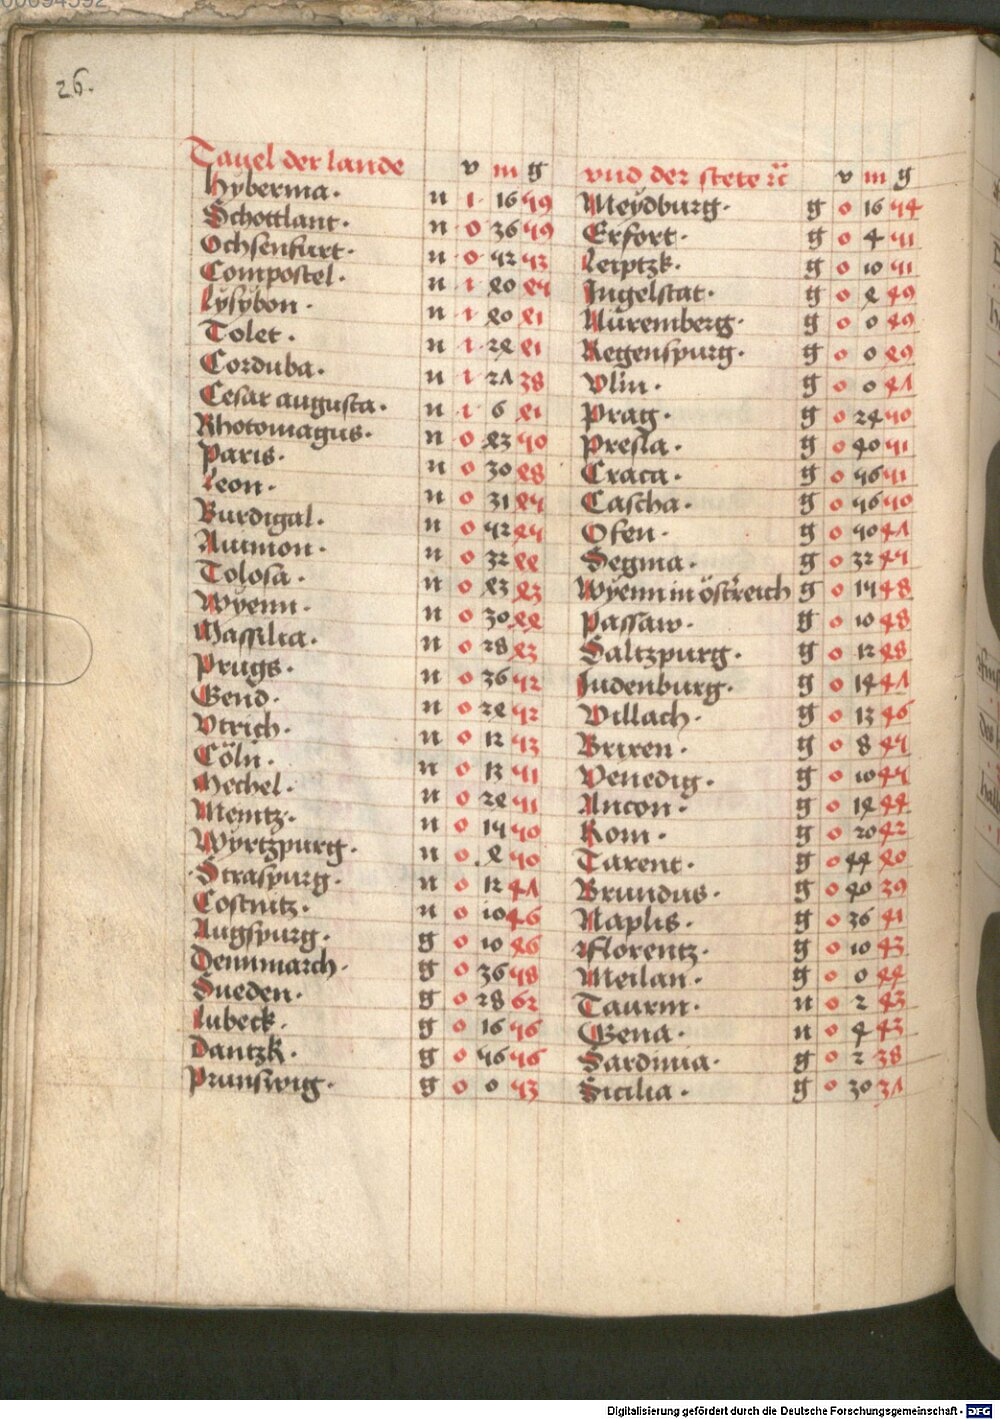 00094592
26.
Tauel der lande v m g vnd der stete ꝛc v m g
Hybernia. n 1 16 59 Meydburg. g 0 16 54
Schottlant. n 0 36 59 Erfort. g 0 4 51
Ochsenfurt. n 0 52 53 Leiptzk. g 0 10 51
Compostel. n 1 40 45 Ingelstat. g 0 4 49
Lysybon. n 1 40 41 Nuremberg. g 0 0 49
Tolet. n 1 24 41 Regenspurg. g 0 0 49
Corduba. n 1 27 38 Vlm. g 0 0 47
Cesar augusta. n 1 6 41 Prag. g 0 24 50
Rhotomagus. n 0 43 50 Presla. g 0 40 51
Paris. n 0 30 48 Craca. g 0 56 51
Leon. n 0 31 45 Cascha. g 0 56 50
Burdigal. n 0 52 45 Ofen. g 0 50 47
Auinion. n 0 32 44 Segnia. g 0 32 45
Tolosa. n 0 43 43 Wyenn in östreich g 0 15 48
Wyenn. n 0 30 44 Passaw. g 0 10 48
Massilia. n 0 28 43 Saltzpurg. g 0 12 48
Prugs. n 0 36 52 Judenburg. g 0 14 47
Gend. n 0 24 52 Villach. g 0 13 46
Vtrich. n 0 12 53 Brixen. g 0 8 45
Cöln. n 0 13 51 Venedig. g 0 10 45
Mechel. n 0 24 51 Ancon. g 0 14 44
Mentz. n 0 15 50 Rom. g 0 20 42
Wyrtzpurg. n 0 4 50 Tarent. g 0 44 40
Straspurg. n 0 12 47 Brundus. g 0 40 39
Costnitz. n 0 10 46 Naplis. g 0 36 41
Augspurg. g 0 10 46 Florentz. g 0 10 43
Dennmarch. g 0 36 58 Meilan. g 0 0 44
Sueden. g 0 28 62 Taurin. n 0 2 43
Lubeck. g 0 16 56 Gena. n 0 4 43
Dantzk. g 0 56 56 Sardinia. g 0 2 38
Prunswig. g 0 0 53 Sicilia. g 0 30 37
Digitalisierung gefördert durch die Deutsche Forschungsgemeinschaft - DFG